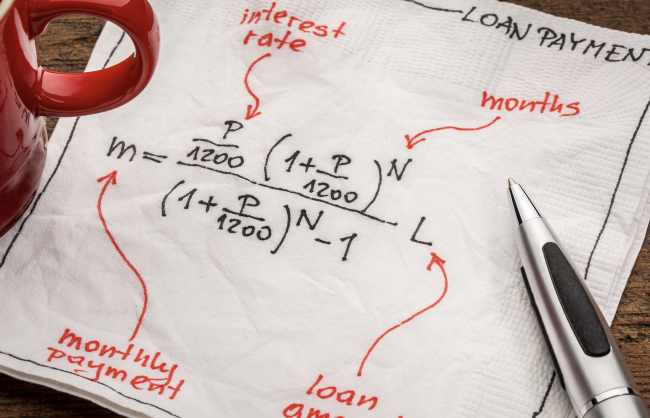 LOAN PAYMENT
interest
rate
months
m = P/1200 (1 + P/1200)^N / (1 + P/1200)^N - 1 L
monthly
payment
loan